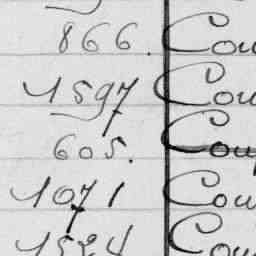 866. Cou
1597 Cou
605. Cou
1071 Cou
1524 Cou